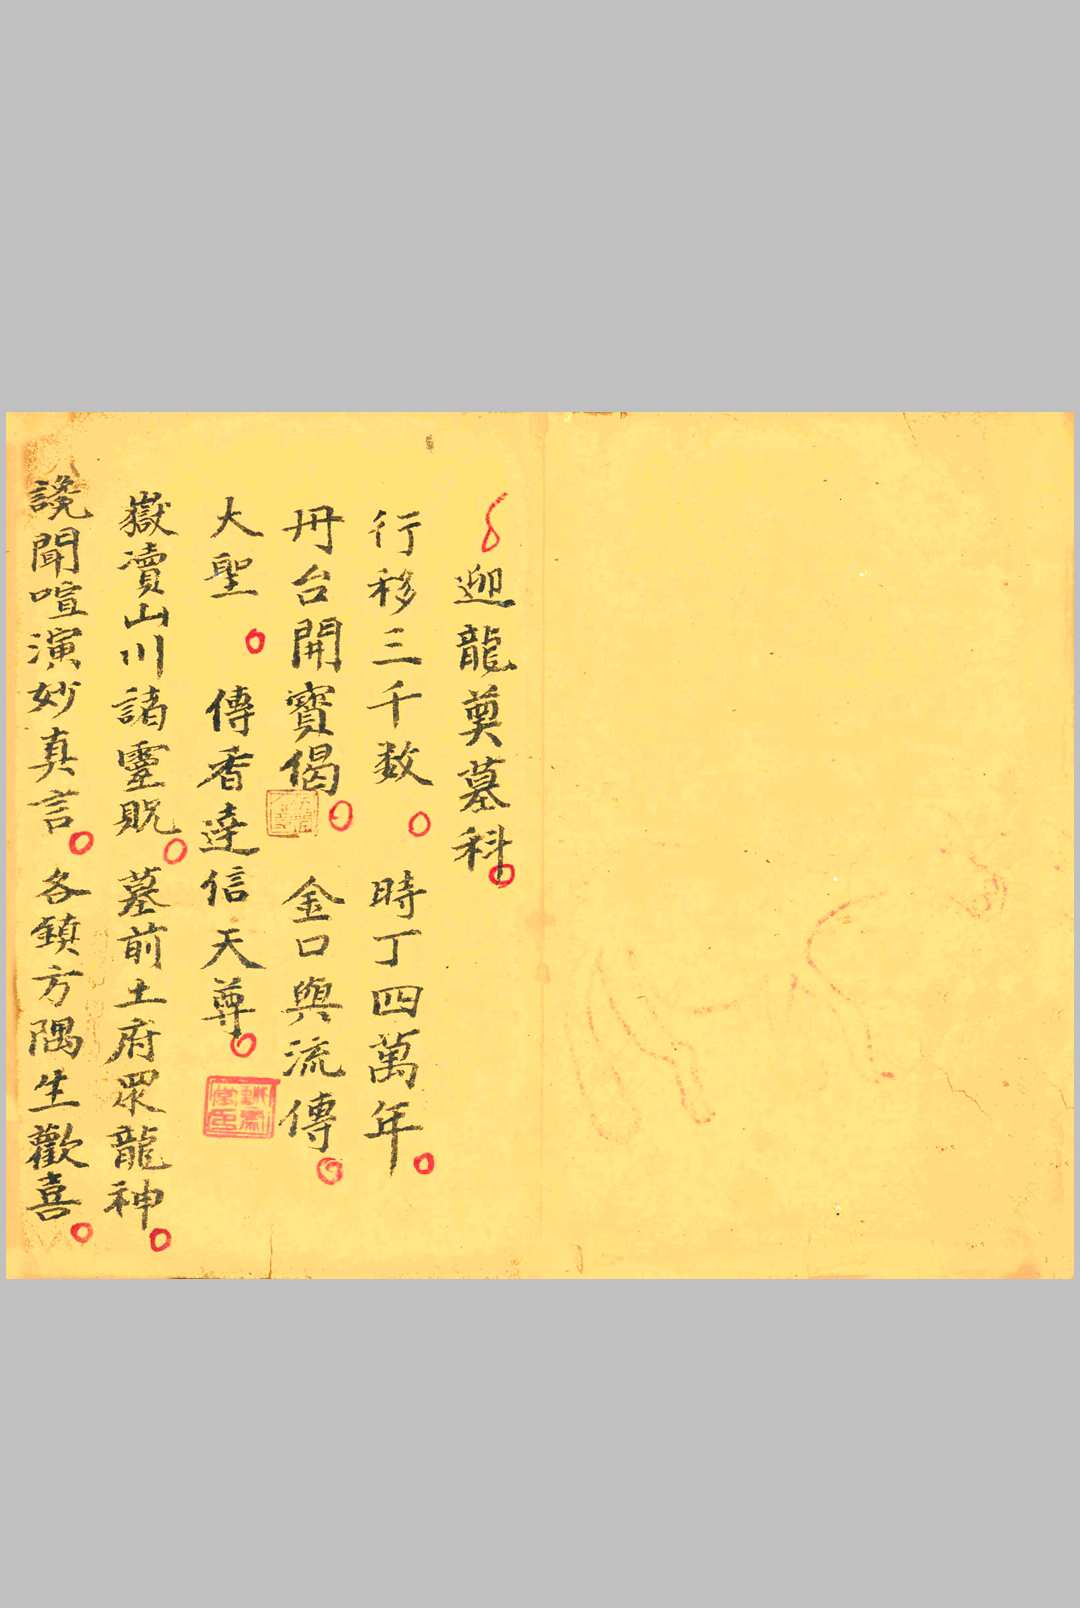 迎龍奠墓科
行移三千数 時丁四萬年
丹台開寳偈 金口與流傳
大聖 傳香達信天尊
嶽瀆山川諸靈貺 墓前土府眾龍神
纔聞喧演妙真言 各鎮方隅生歡喜